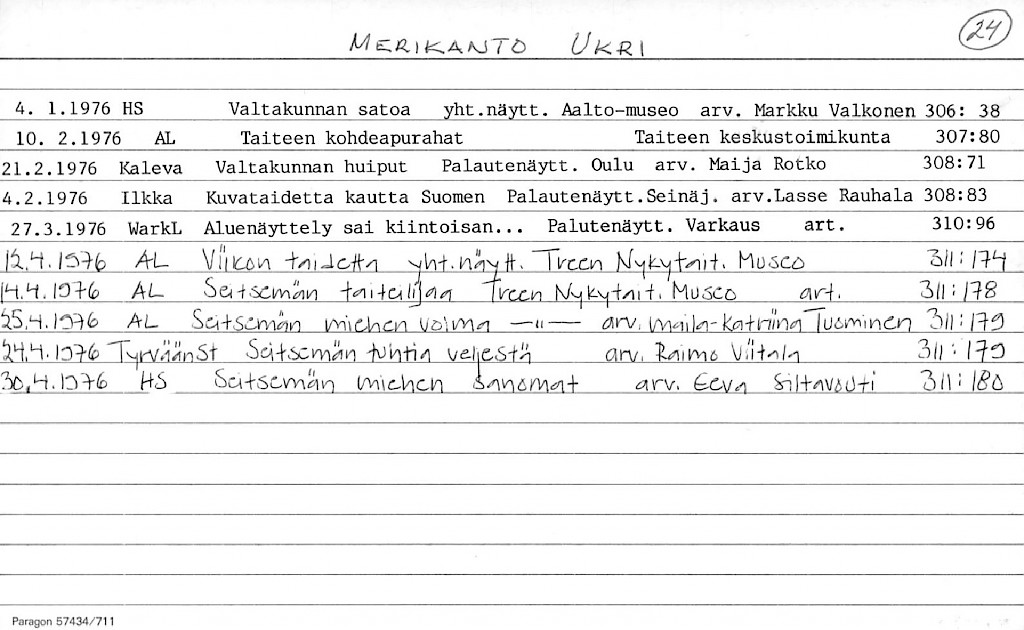 MERIKANTO UKRI 24
4. 1.1976 HS Valtakunnan satoa yht.näytt. Aalto-museo arv. Markku Valkonen 306: 38
10. 2.1976 AL Taiteen kohdeapurahat Taiteen keskustoimikunta 307:80
21.2.1976 Kaleva Valtakunnan huiput Palautenäytt. Oulu arv. Maija Rotko 308:71
4.2.1976 Ilkka Kuvataidetta kautta Suomen Palautenäytt.Seinäj. arv.Lasse Rauhala 308:83
27.3.1976 WarkL Aluenäyttely sai kiintoisan... Palutenäytt. Varkaus art. 310:96
12.4.1976 AL Viikon taidetta yht.näytt. Treen Nykytait. Museo 311:174
14.4.1976 AL Seitsemän taiteilijaa Treen Nykytait. Museo art. 311:178
25.4.1976 AL Seitsemän miehen voima —"— arv. Maila-Katriina Tuominen 311:179
24.4.1976 TyrväänSt Seitsemän tuhtia veljestä arv. Raimo Viitala 311:179
30.4.1976 HS Seitsemän miehen sanomat arv. Eeva Siltavuoti 311:180
Paragon 57434/711